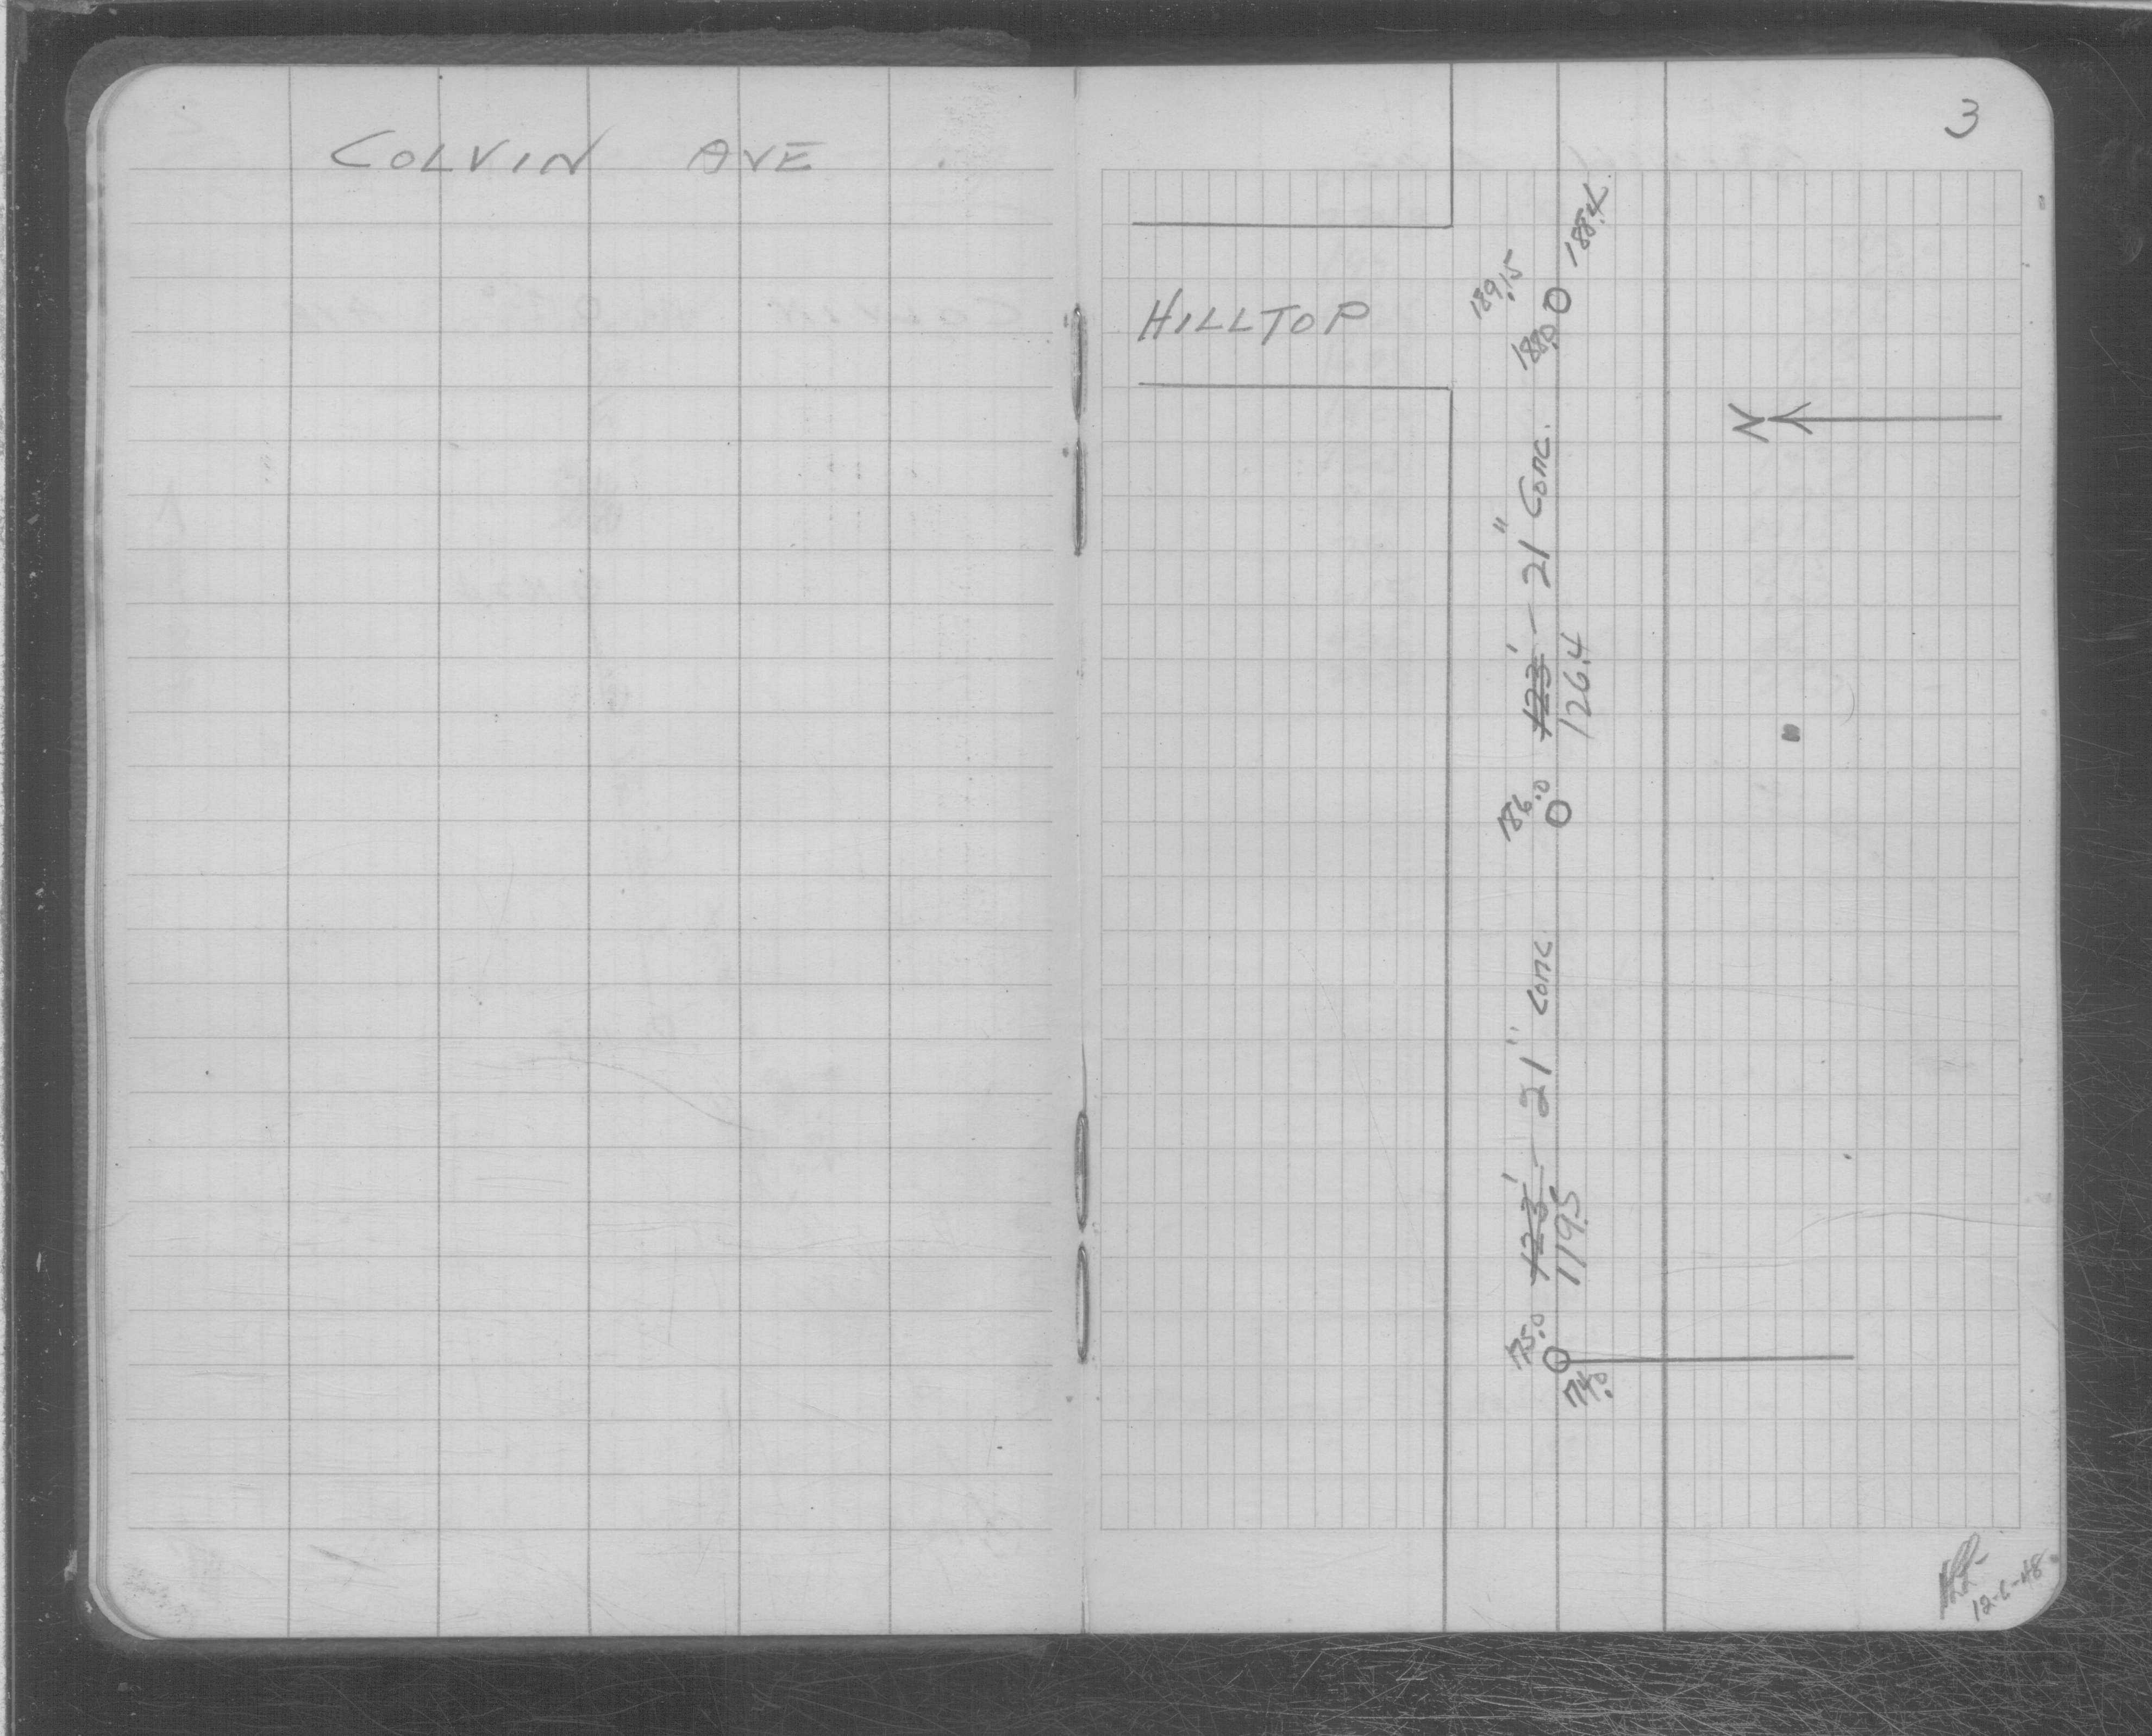 COLVIN AVE
3
188.4
189.15
188.0
HILLTOP
N
123' - 21" CONC.
126.4
186.0
123' - 21" CONC
119.5
175.0
174.0
12-6-48